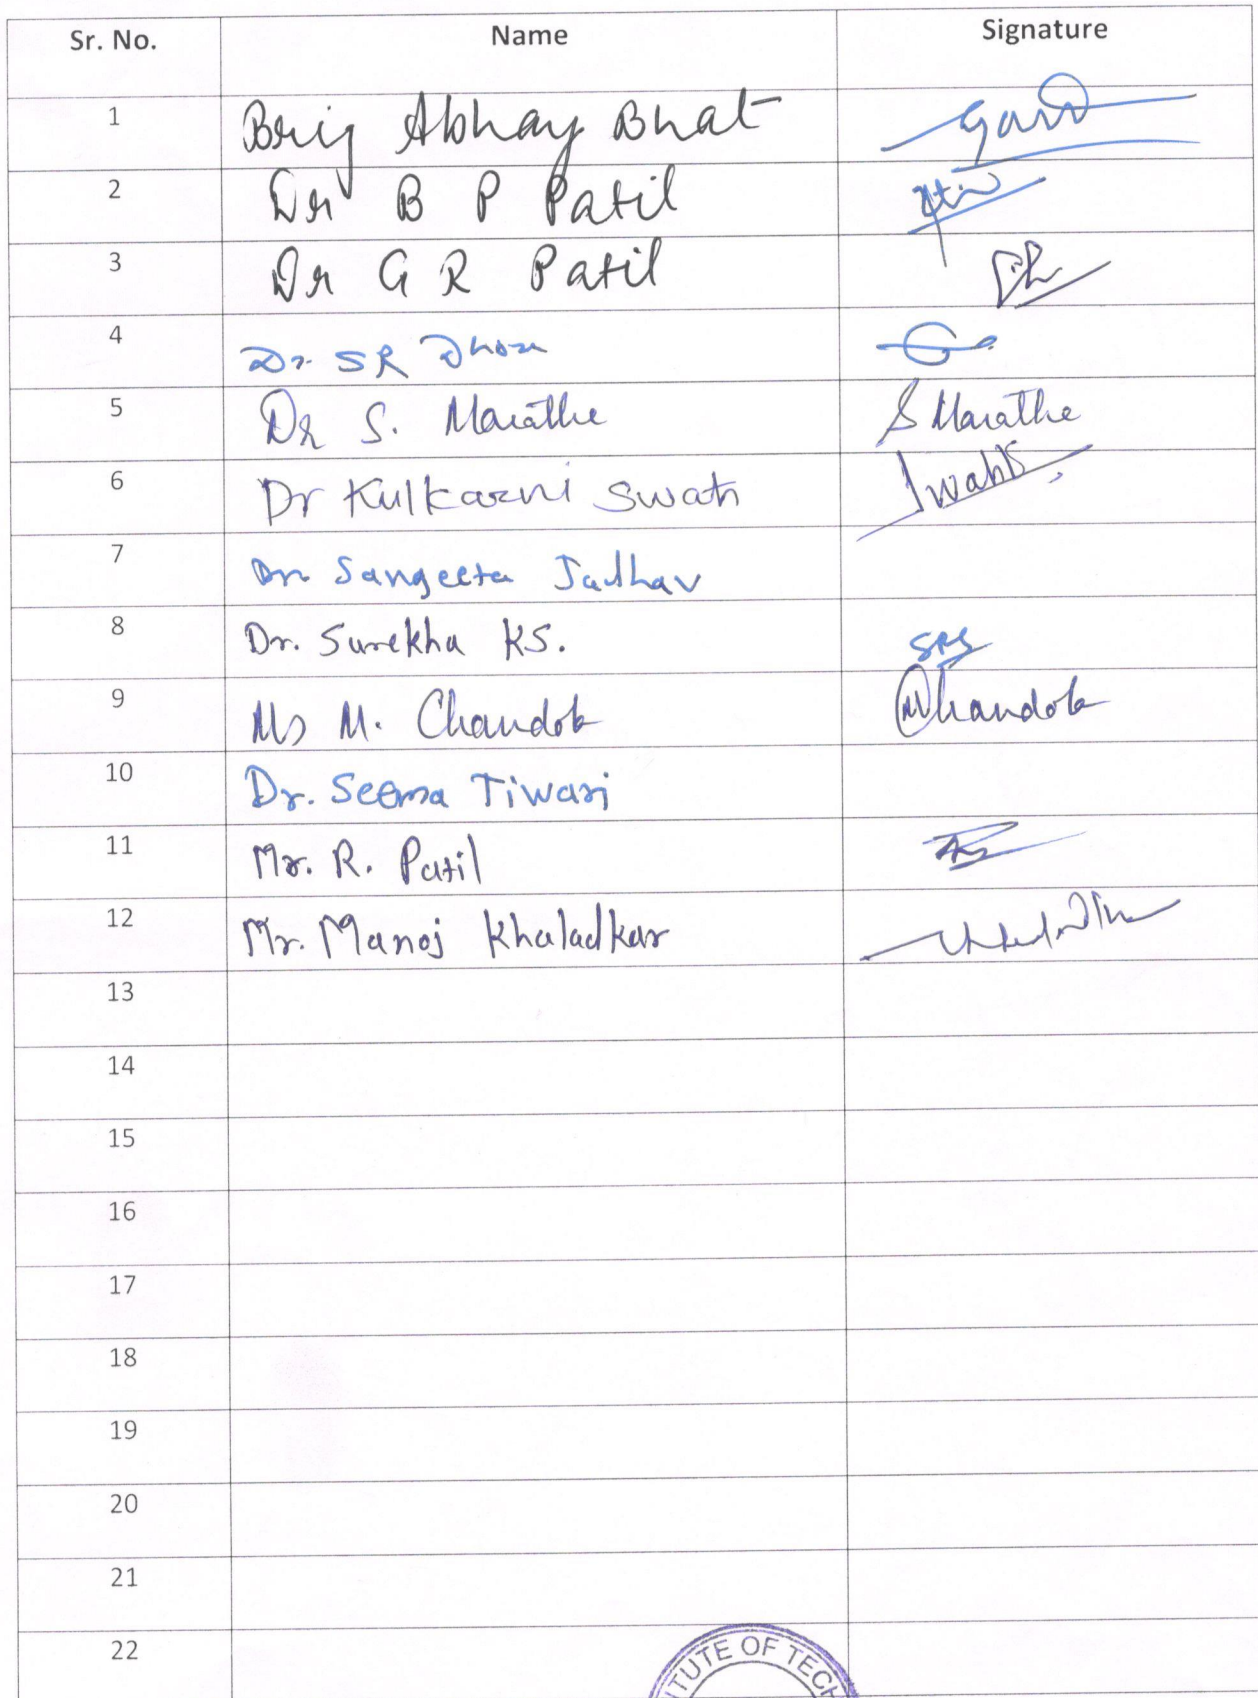 Sr. No. Name Signature
1 Brig Abhay Bhat
2 Dr B P Patil
3 Dr G R Patil
4 Dr SR Dhore
5 Dr S. Marathe S Marathe
6 Dr Kulkarni Swati Swatik
7 Dr. Sangeeta Jadhav
8 Dr. Surekha KS. SRS
9 Ms M. Chandok MChandok
10 Dr. Seema Tiwari
11 Mr. R. Patil
12 Mr. Manoj Khaladkar
13
14
15
16
17
18
19
20
21
22
TUTE OF TECH